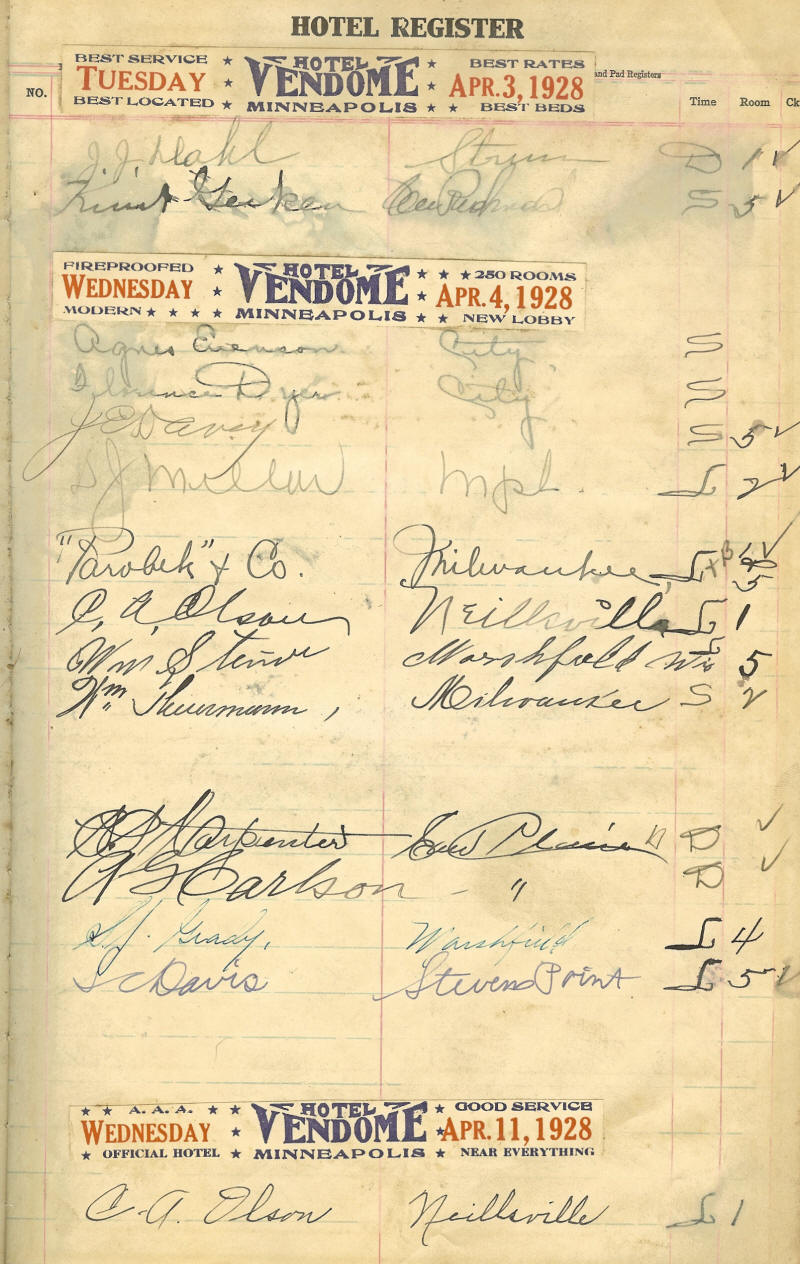 HOTEL REGISTER
BEST SERVICE ★ HOTEL ★ BEST RATES
TUESDAY ★ VENDOME ★ APR. 3, 1928
BEST LOCATED ★ MINNEAPOLIS ★ ★ BEST BEDS
and Pad Registers
NO. Time Room Ck
J. J. Dahl Strum D 1 ✓
S 5 ✓
FIREPROOFED ★ HOTEL ★ ★ ★ 250 ROOMS
WEDNESDAY ★ VENDOME ★ APR. 4, 1928
MODERN ★ ★ ★ ★ MINNEAPOLIS ★ ★ NEW LOBBY
Agnes Evenson City S
Florence Dyer City S
J E Davey S 5 ✓
S J Millar Mpls. L 2 ✓
"Parobek" & Co. Milwaukee, L
C. A. Olson Neillsville L 1
Wm Marshfield Wis 5
Wm. Milwaukee S 2
Carpenter Eau Plaine D ✓
A G Carlson - " D ✓
S. J. Grady, Marshfield L 4
S C Davis Stevens Point L 5 ✓
★ ★ A. A. A. ★ ★ HOTEL ★ GOOD SERVICE
WEDNESDAY ★ VENDOME ★ APR. 11, 1928
★ OFFICIAL HOTEL ★ MINNEAPOLIS ★ NEAR EVERYTHING
C. A. Olson Neillsville L 1